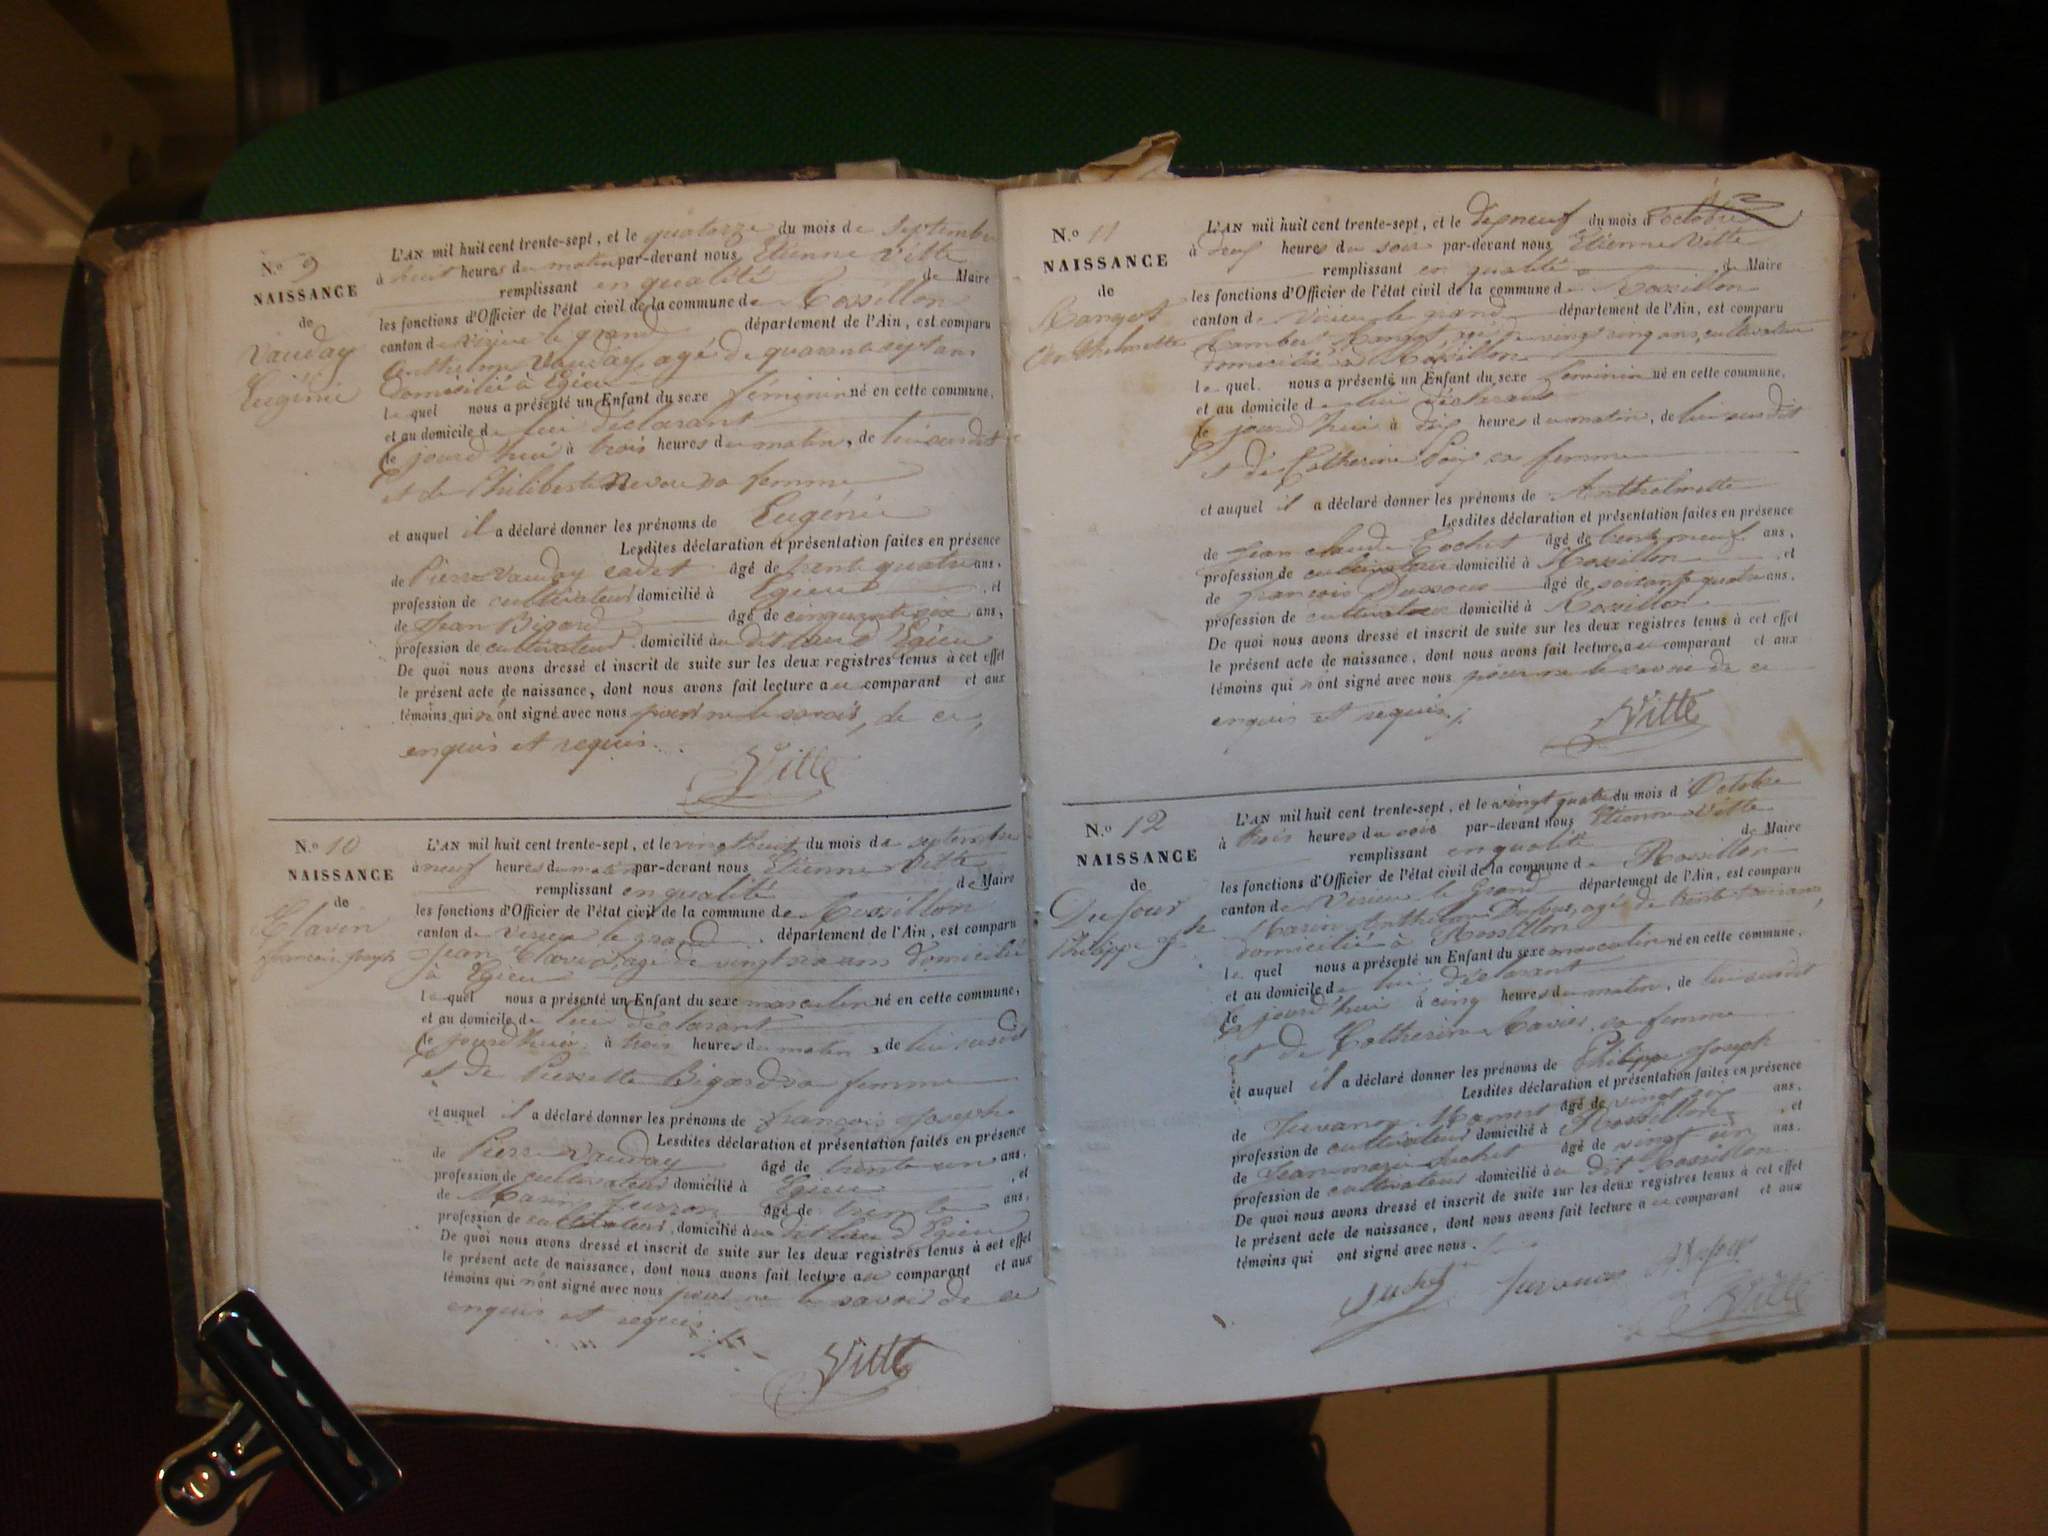 N.o 9
NAISSANCE
de
Vauday
Eugénie
L'AN mil huit cent trente-sept, et le quatorze du mois de septembre
à huit heures du matin par-devant nous Etienne Vitte
remplissant en qualité de Maire
les fonctions d'Officier de l'état civil de la commune de Rossillon
canton de Virieu le grand département de l'Ain, est comparu
Anthelme Vauday, agé de quarante sept ans
domicilié à Egieu
le quel nous a présenté un Enfant du sexe féminin né en cette commune,
et au domicile de lui déclarant
le jourd'hui à trois heures du matin, de lui susdit
et de Philiberte sa femme
et auquel il a déclaré donner les prénoms de Eugénie
Lesdites déclaration et présentation faites en présence
de Pierre Vauday cadet âgé de trente quatre ans,
profession de cultivateur domicilié à Egieu, et
de Jean Bigard âgé de cinquante six ans,
profession de cultivateur domicilié au dit lieu d'Egieu
De quoi nous avons dressé et inscrit de suite sur les deux registres tenus à cet effet
le présent acte de naissance, dont nous avons fait lecture au comparant et aux
témoins qui n'ont signé avec nous pour ne le savoir, de ce
enquis et requis.
Vitte
N.o 10
NAISSANCE
de
Clavin
françois joseph
L'AN mil huit cent trente-sept, et le vingt huit du mois de septembre
à neuf heures du matin par-devant nous Etienne Vitte
remplissant en qualité de Maire
les fonctions d'Officier de l'état civil de la commune de Rossillon
canton de Virieu le grand département de l'Ain, est comparu
Jean Clavin, agé de vingt six ans domicilié
à Egieu
le quel nous a présenté un Enfant du sexe masculin né en cette commune,
et au domicile de lui déclarant
le jourd'hui à trois heures du matin, de lui susdit
et de Pierrette Bigard sa femme
et auquel il a déclaré donner les prénoms de françois Joseph
Lesdites déclaration et présentation faites en présence
de Pierre Vauday âgé de trente un ans,
profession de cultivateur domicilié à Egieu, et
de Marin âgé de trente ans,
profession de cultivateur, domicilié au dit lieu d'Egieu
De quoi nous avons dressé et inscrit de suite sur les deux registres tenus à cet effet
le présent acte de naissance, dont nous avons fait lecture au comparant et aux
témoins qui n'ont signé avec nous pour ne le savoir de ce
enquis et requis
Vitte
N.o 11
NAISSANCE
de
Mangot
Anthelmette
L'AN mil huit cent trente-sept, et le dixneuf du mois d'octobre
à deux heures du soir par-devant nous Etienne Vitte
remplissant en qualité de Maire
les fonctions d'Officier de l'état civil de la commune de Rossillon
canton de Virieu le grand département de l'Ain, est comparu
Lambert Mangot, agé de vingt cinq ans, cultivateur
domicilié à Rossillon
le quel nous a présenté un Enfant du sexe feminin né en cette commune,
et au domicile de lui déclarant
le jourd'hui à dix heures du matin, de lui susdit
et de Catherine sa femme
et auquel il a déclaré donner les prénoms de Anthelmette
Lesdites déclaration et présentation faites en présence
de Jean claude Cochet âgé de trente neuf ans,
profession de cultivateur domicilié à Rossillon, et
de françois Dussous âgé de soixante quatre ans,
profession de cultivateur domicilié à Rossillon
De quoi nous avons dressé et inscrit de suite sur les deux registres tenus à cet effet
le présent acte de naissance, dont nous avons fait lecture, au comparant et aux
témoins qui n'ont signé avec nous pour ne le savoir de ce
enquis et requis
Vitte
N.o 12
NAISSANCE
de
Dufour
Philippe jph
L'AN mil huit cent trente-sept, et le vingt quatre du mois d'Octobre
à trois heures du soir par-devant nous Etienne Vitte
remplissant en qualité de Maire
les fonctions d'Officier de l'état civil de la commune de Rossillon
canton de Virieu le Grand département de l'Ain, est comparu
Marin Anthelme Dufour, agé de trente trois ans,
domicilié à Rossillon
le quel nous a présenté un Enfant du sexe masculin né en cette commune,
et au domicile de lui déclarant
le jourd'hui à cinq heures du matin, de lui susdit
et de Catherine sa femme
et auquel il a déclaré donner les prénoms de Philippe Joseph
Lesdites déclaration et présentation faites en présence
de âgé de vingt six ans,
profession de cultivateur domicilié à Rossillon, et
de Jean marie Suchet âgé de vingt un ans,
profession de cultivateur domicilié au dit Rossillon
De quoi nous avons dressé et inscrit de suite sur les deux registres tenus à cet effet
le présent acte de naissance, dont nous avons fait lecture au comparant et aux
témoins qui ont signé avec nous.
Suchet Dufour
Vitte